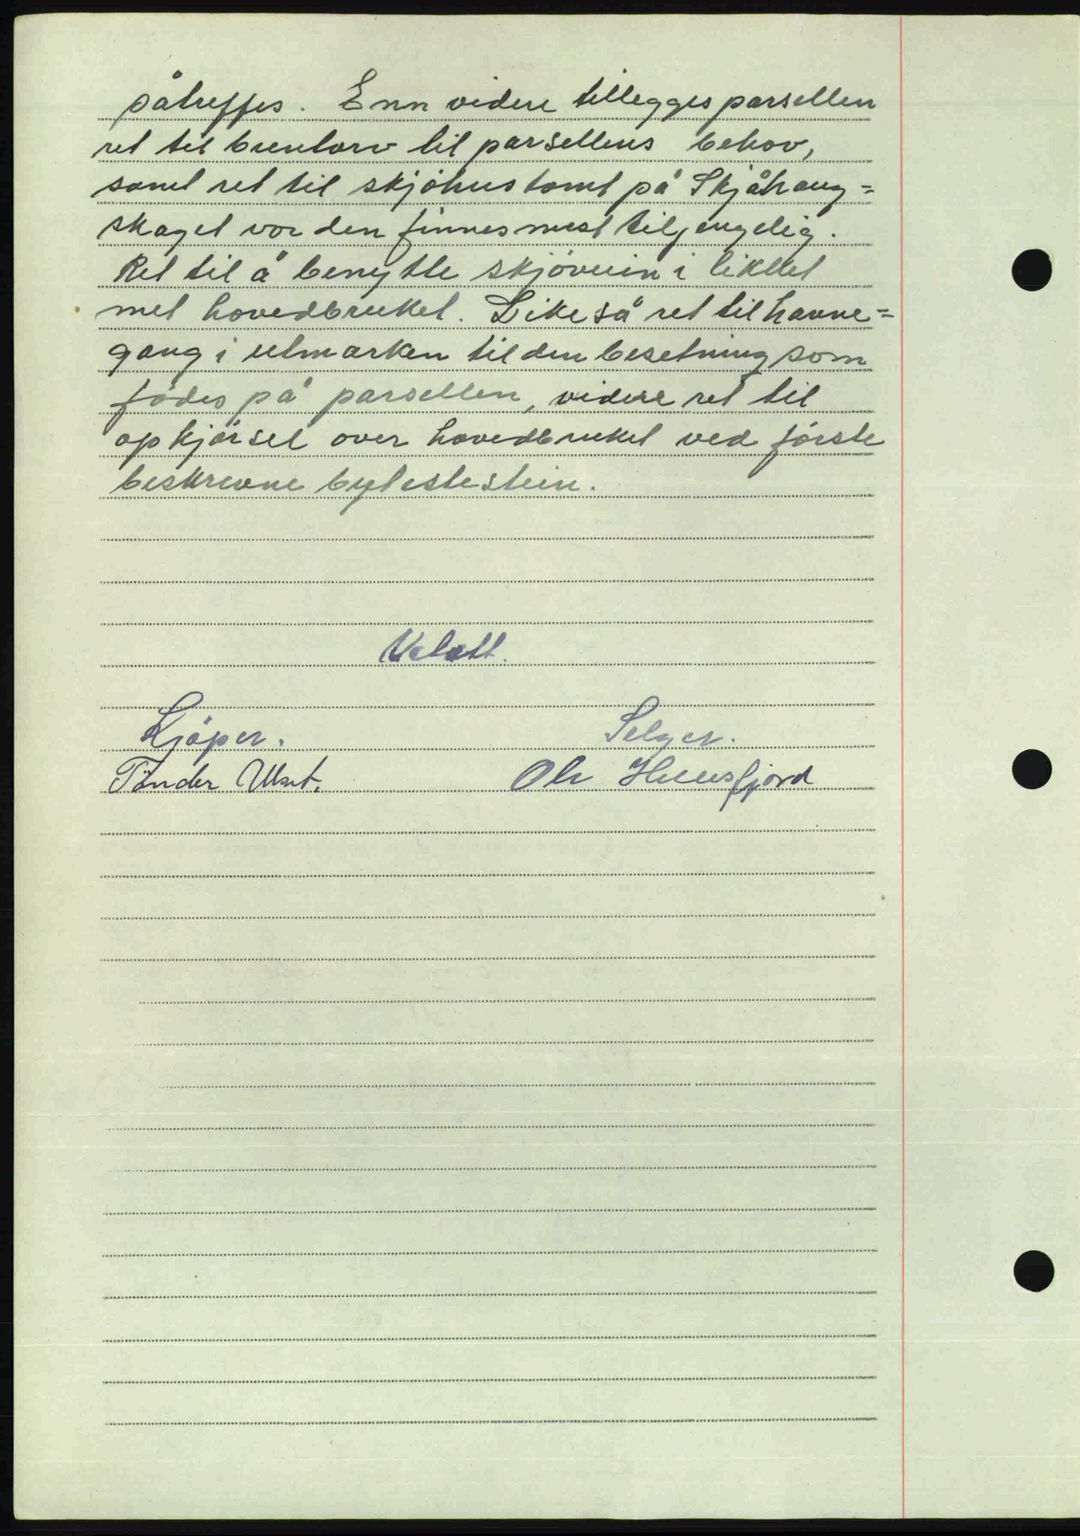 påtreffes. Enn videre tillegges parsellen
ret til brentorv til parsellens behov,
samt ret til skjåhustomt på Skjåhaug=
skaget vor den finnes mest tilgengelig.
Ret til å benytte skjåveien i likhet
met hovedbruket. Like så ret til havne=
gang i utmarken til den besetning som
födes på parsellen, videre ret til
opkjörsel over hovedbruket ved förste
beskrevne bytestestein.
Vedtatt.
Kjöper. Selger.
Tönder Ole